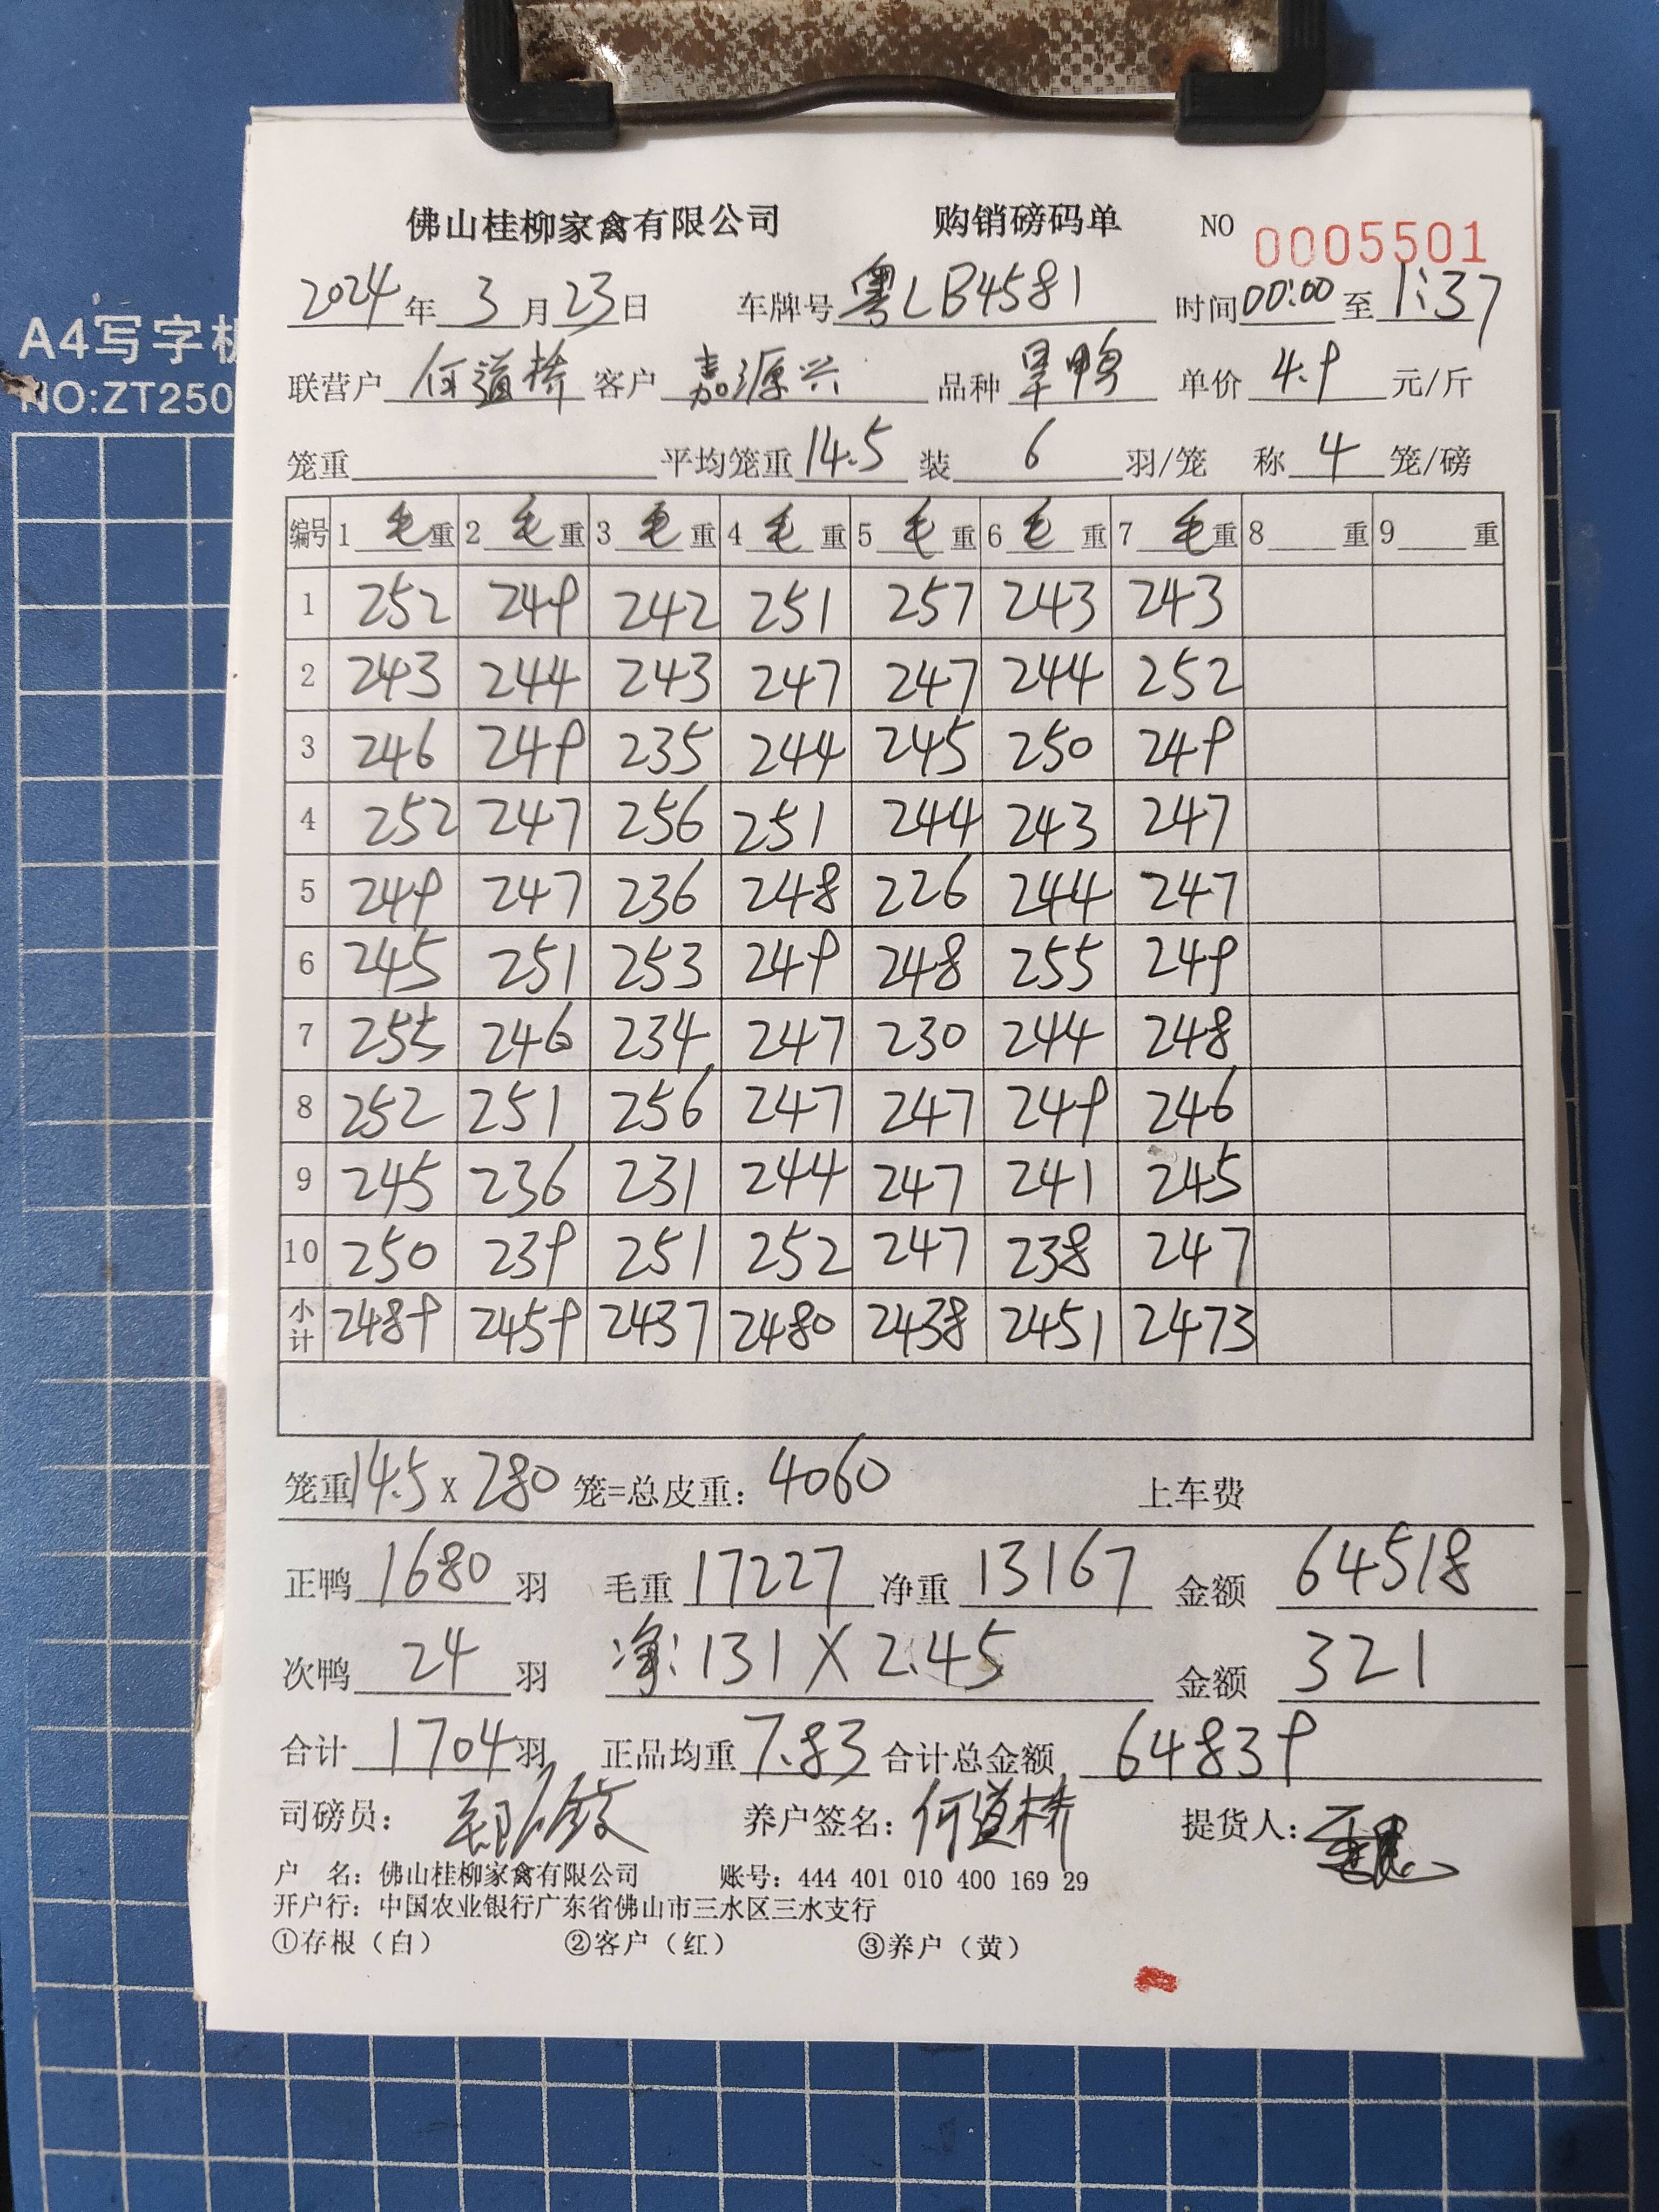 A4写字板
NO:ZT250
佛山桂柳家禽有限公司 购销磅码单 NO 0005501
2024年3月23日 车牌号粤LB4581 时间00:00至1:37
联营户何道桥 客户嘉源兴 品种旱鸭 单价4.9元/斤
笼重 平均笼重14.5 装6羽/笼 称4笼/磅
编号 1毛重 2毛重 3毛重 4毛重 5毛重 6毛重 7毛重 8重 9重
1 252 249 242 251 257 243 243
2 243 244 243 247 247 244 252
3 246 249 235 244 245 250 249
4 252 247 256 251 244 243 247
5 249 247 236 248 226 244 247
6 245 251 253 249 248 255 249
7 255 246 234 247 230 244 248
8 252 251 256 247 247 249 246
9 245 236 231 244 247 241 245
10 250 239 251 252 247 238 247
小计 2489 2459 2437 2480 2438 2451 2473
笼重14.5X280笼=总皮重：4060 上车费
正鸭1680羽 毛重17227 净重13167 金额64518
次鸭24羽 净:131X2.45 金额321
合计1704羽 正品均重7.83 合计总金额64839
司磅员： 养户签名：何道桥 提货人：
户 名：佛山桂柳家禽有限公司 账号：444 401 010 400 169 29
开户行：中国农业银行广东省佛山市三水区三水支行
①存根（白） ②客户（红） ③养户（黄）